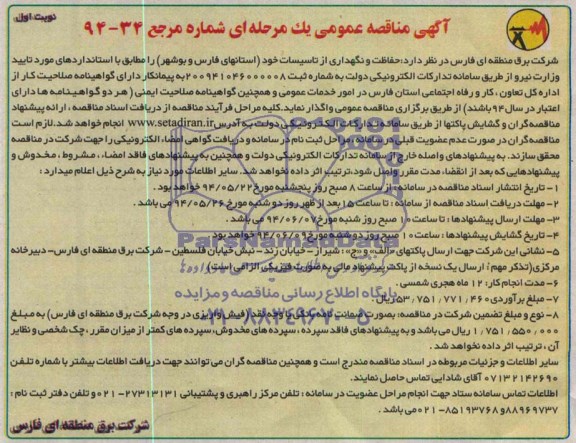 نوبت اول
آگهی مناقصه عمومی یك مرحله ای شماره مرجع ۳۴-۹۴
شرکت برق منطقه ای فارس در نظر دارد:حفاظت و نگهداری از تاسیسات خود (استانهای فارس و بوشهر) را مطابق با استانداردهای مورد تایید
وزارت نیرو از طریق سامانه تدارکات الکترونیکی دولت به شماره ثبت ۲۰۰۹۴۱۰۴۶۰۰۰۰۰۸ به پیمانکار دارای گواهینامه صلاحیت کار از
اداره کل تعاون ، کار و رفاه اجتماعی استان فارس در امور خدمات عمومی و همچنین گواهینامه صلاحیت ایمنی (هر دو گواهینامه ها دارای
اعتبار در سال۹۴ باشند) از طریق برگزاری مناقصه عمومی واگذار نماید.کلیه مراحل فرآیند مناقصه از دریافت اسناد مناقصه ، ارائه پیشنهاد
مناقصه گران و گشایش پاکتها از طریق سامانه تدارکات الکترونیکی دولت به آدرس www.setadiran.ir انجام خواهد شد.لازم است
مناقصه گران در صورت عدم عضویت قبلی در سامانه، مراحل ثبت نام در سامانه و دریافت گواهی امضاء الکترونیکی را جهت شرکت در مناقصه
محقق سازند. به پیشنهادهای واصله خارج از سامانه تدارکات الکترونیکی دولت و همچنین به پیشنهادهای فاقد امضاء ، مشروط ، مخدوش و
پیشنهادهایی که بعد از انقضاء مدت مقرر واصل شود،ترتیب اثر داده نخواهد شد. سایر اطلاعات مورد نیاز به شرح ذیل اعلام میدارد :
۱- تاریخ انتشار اسناد مناقصه در سامانه: از ساعت ۸ صبح روز پنجشنبه مورخ ۹۴/۰۵/۲۲ خواهد بود.
۲- مهلت دریافت اسناد مناقصه از سامانه : تا ساعت ۱۵ بعد از ظهر روز دو شنبه مورخ ۹۴/۰۵/۲۶ می باشد .
۳- مهلت ارسال پیشنهادها : تا ساعت ۱۰ صبح روز شنبه مورخ ۹۴/۰۶/۰۷ می باشد .
۴- تاریخ گشایش پیشنهادها : ساعت ۱۰ صبح روز دو شنبه مورخ ۹۴/۰۶/۰۹ خواهد بود
۵- نشانی این شرکت جهت ارسال پاکتهای «الف» و «ج» : شیراز - خیابان زند - نبش خیابان فلسطین - شرکت برق منطقه ای فارس- دبیرخانه
مرکزی(تذکر مهم: ارسال یک نسخه از پاکت پیشنهاد مالی به صورت فیزیکی الزامی است)
۶- مدت انجام کار: ۱۲ ماه هجری شمسی .
۷- مبلغ برآوردی ۵۳/۷۵۱/۷۷۱/۴۶۰ ریال می باشد.
۸- نوع و مبلغ تضمین شرکت در مناقصه: بصورت ضمانت نامه بانکی یا وجه نقد (فیش واریزی در وجه شرکت برق منطقه ای فارس) به مبلغ
۱/۷۵۱/۵۵۰/۰۰۰ ریال می باشد و به پیشنهادهای فاقد سپرده ، سپرده های مخدوش، سپرده های کمتر از میزان مقرر ، چک شخصی و نظایر
آن ، ترتیب اثر داده نخواهد شد.
سایر اطلاعات و جزئیات مربوطه در اسناد مناقصه مندرج است و همچنین مناقصه گران می توانند جهت دریافت اطلاعات بیشتر با شماره تلفن
۰۷۱۳۲۱۴۲۶۹۰ آقای شدایی تماس حاصل نمایند.
اطلاعات تماس سامانه ستاد جهت انجام مراحل عضویت در سامانه : تلفن مرکز راهبری و پشتیبانی ۲۷۳۱۳۱۳۱-۰۲۱ و تلفن دفتر ثبت نام :
۸۸۹۶۹۷۳۷ و ۸۵۱۹۳۷۶۸-۰۲۱ می باشد .
شرکت برق منطقه ای فارس
ParsNamadData
پایگاه اطلاع رسانی مناقصه و مزایده
۰۲۱-۸۸۳۴۹۶۷۰-۵